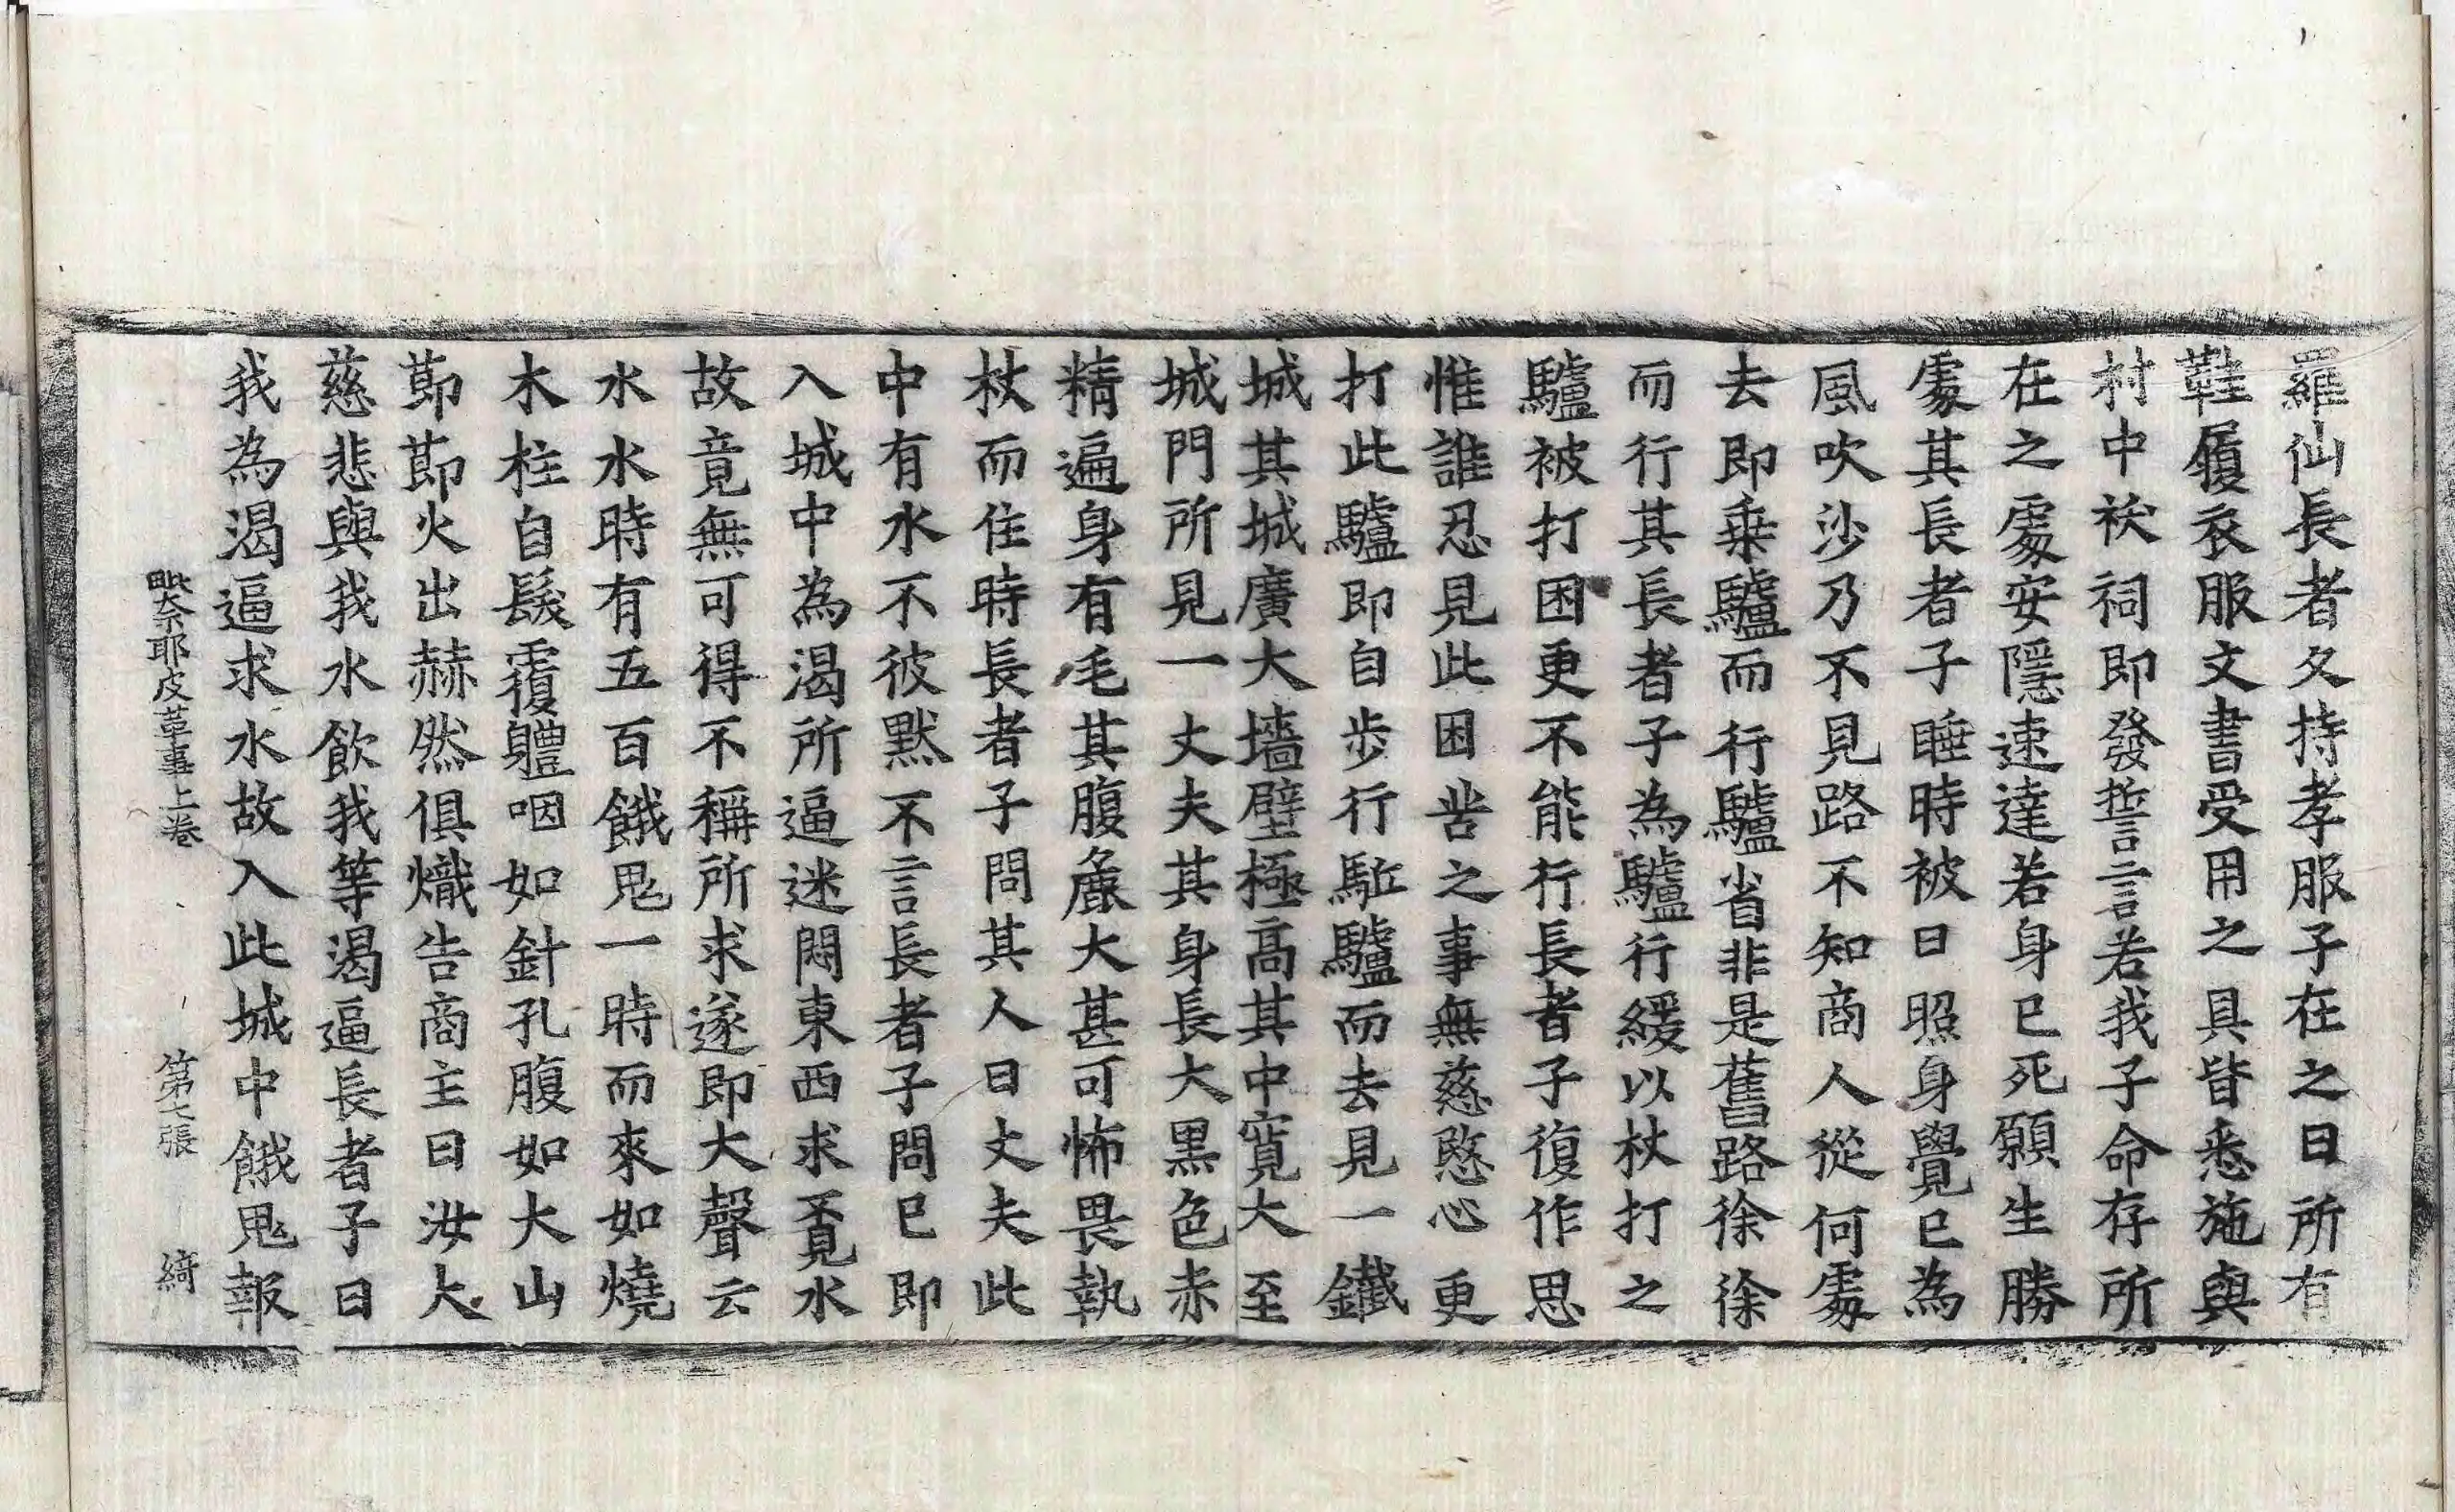 羅仙長者久持孝服子在之日所有
鞋履衣服文書受用之具皆悉施與
村中祆祠即發誓言若我子命存所
在之處安隱速達若身已死願生勝
處其長者子睡時被日照身覺已為
風吹沙乃不見路不知商人從何處
去即乗驢而行驢省非是舊路徐徐
而行其長者子為驢行緩以杖打之
驢被打困更不能行長者子復作思
惟誰忍見此困苦之事無慈愍心更
打此驢即自步行駈驢而去見一鐵
城其城廣大墻壁極高其中寬大至
城門所見一丈夫其身長大黒色赤
精遍身有毛其腹麁大甚可怖畏執
杖而住時長者子問其人曰丈夫此
中有水不彼黙不言長者子問已即
入城中為渴所逼迷悶東西求覓水
故竟無可得不稱所求遂即大聲云
水水時有五百餓鬼一時而來如燒
木柱自髮覆軆咽如針孔腹如大山
莭莭火出赫然俱熾告商主曰汝大
慈悲與我水飲我等渴逼長者子曰
我為渴逼求水故入此城中餓鬼報
毗奈耶皮革事上卷 第七張 綺